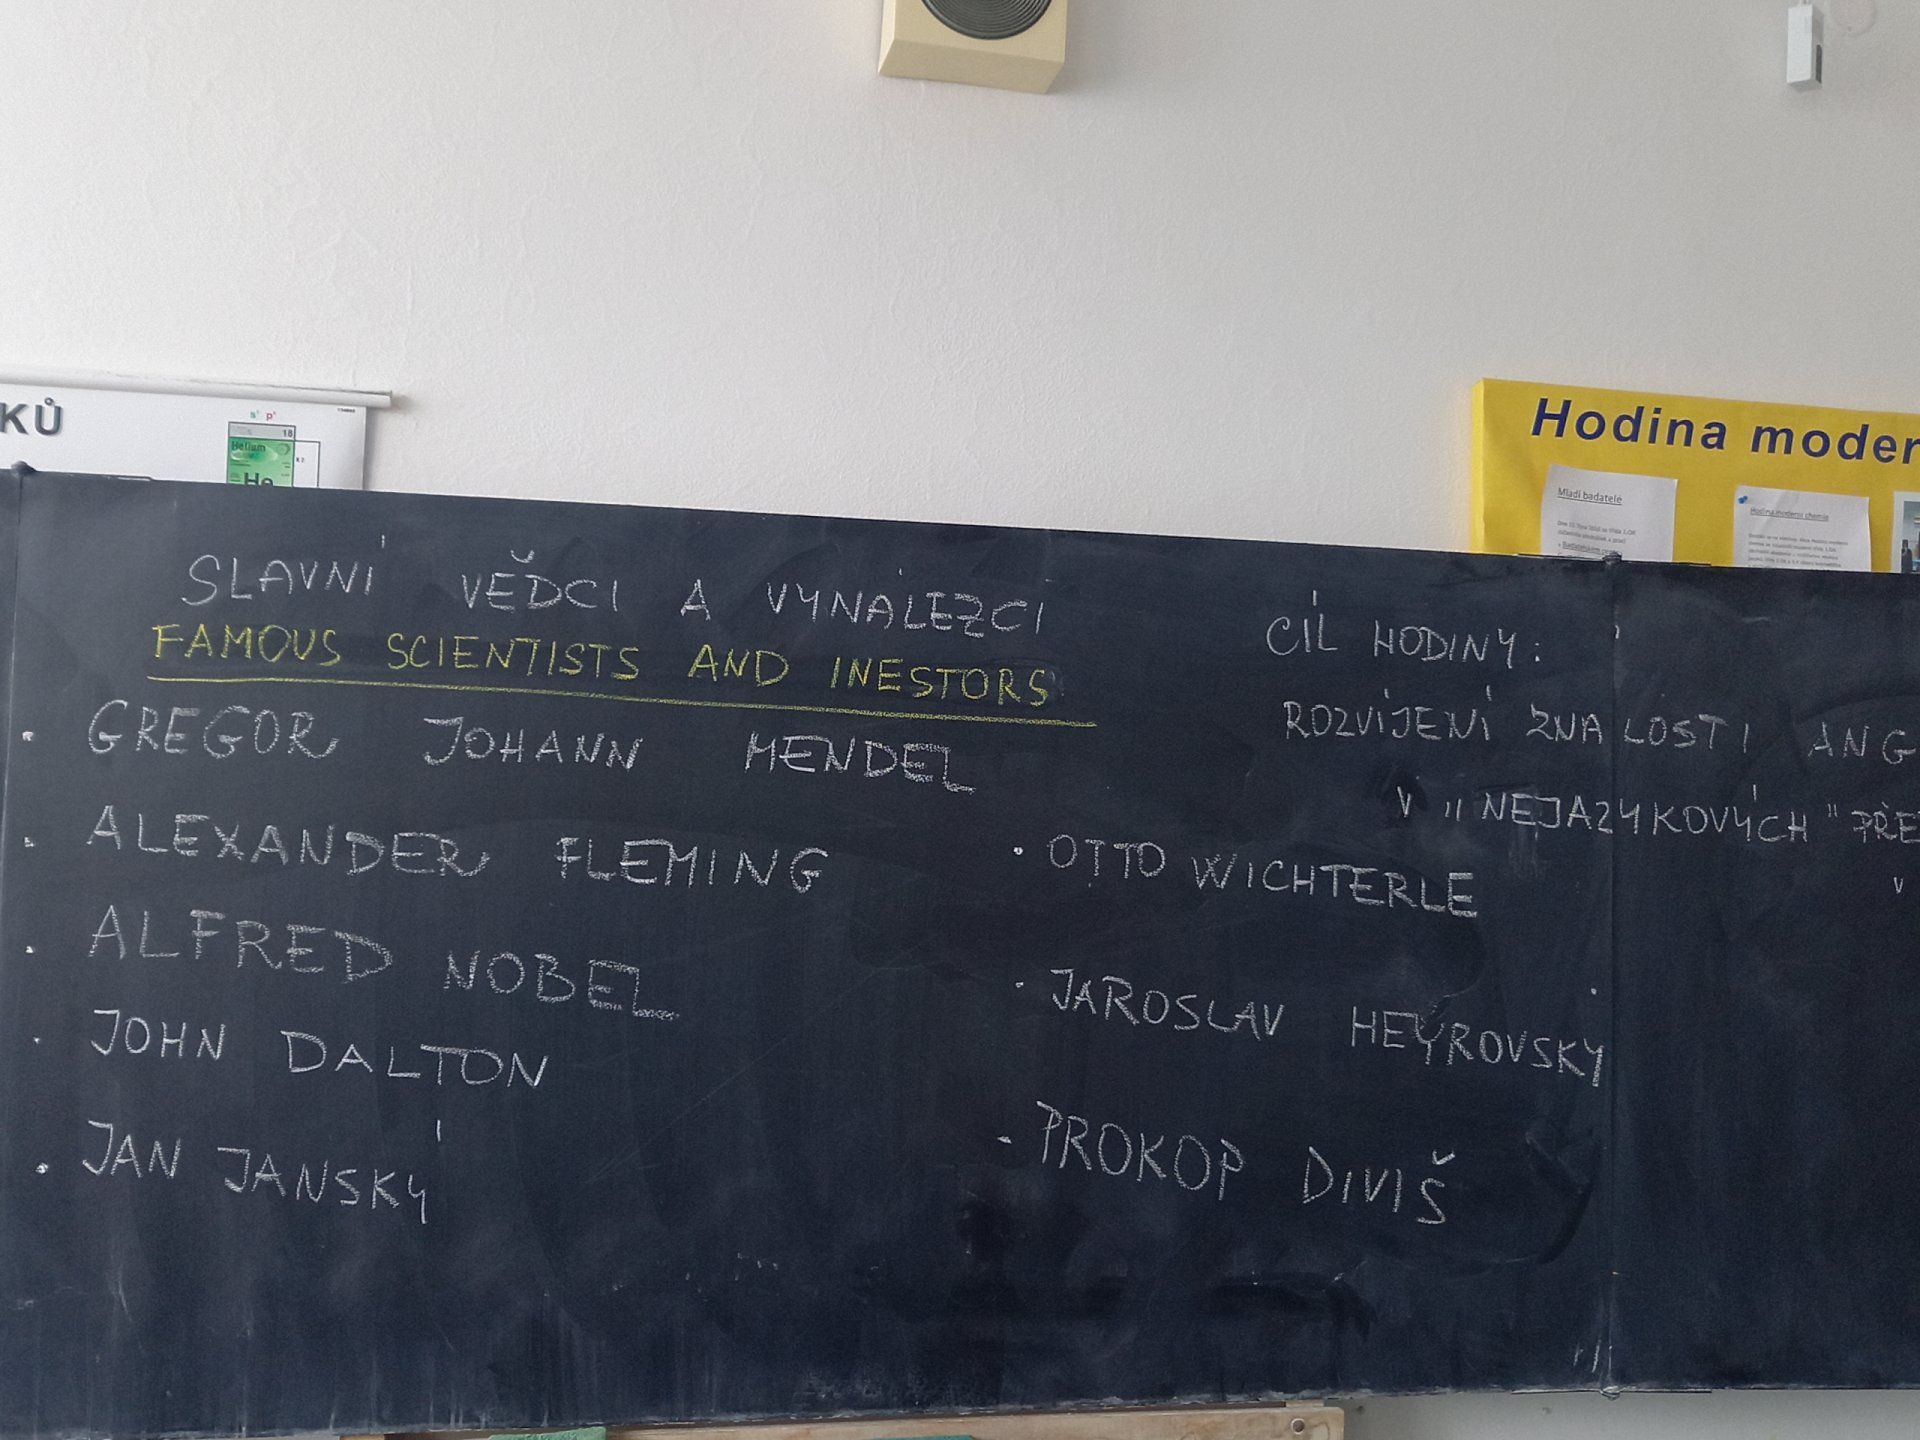 KŮ
s¹ p⁶
18
Helium
He
Hodina moder
Mladí badatelé
Hodina moderní chemie
SLAVNÍ VĚDCI A VYNÁLEZCI
FAMOUS SCIENTISTS AND INESTORS
• GREGOR JOHANN MENDEL
• ALEXANDER FLEMING
• ALFRED NOBEL
• JOHN DALTON
• JAN JANSKÝ
CÍL HODINY:
ROZVÍJENÍ ZNALOSTI ANG
V „NEJAZYKOVÝCH" PŘE
V
• OTTO WICHTERLE
• JAROSLAV HEYROVSKÝ
- PROKOP DIVIŠ